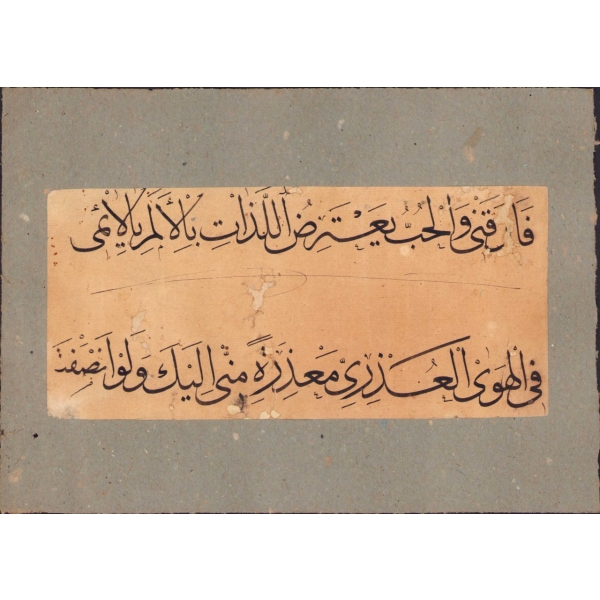 فَأَرَّقَنِى وَالْحُبُّ يَعْتَرِضُ اللَّذَّاتِ بِالْأَلَمِ يَالَائِمِى
فِى الْهَوَى الْعُذْرِىِّ مَعْذِرَةً مِنِّى اِلَيْكَ وَلَوْ اَنْصَفْتَ